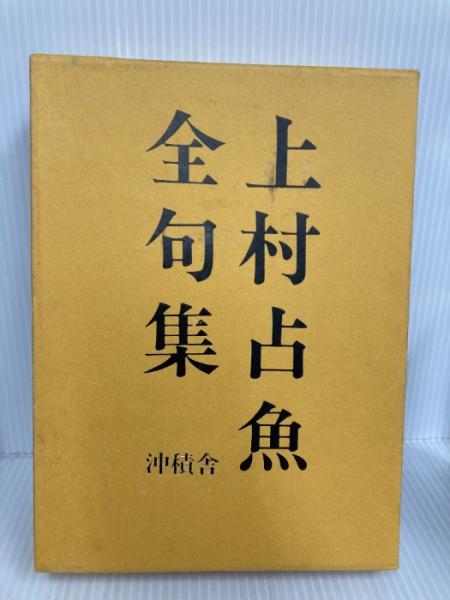 上村占魚
全句集
沖積舎